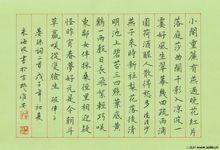 小閣重簾有燕過晚花紅片
落庭莎曲闌干影入凉波一
霎好風生翠幕幾回疏雨滴
圓荷酒醒人散得愁多 浣溪沙
燕子來時新社梨花落後清
明池上碧苔三四點葉底黄
鸝一兩聲日長飛絮輕 巧笑
東鄰女伴採桑徑里相逢疑
怪昨宵春夢好元是今朝鬥
草贏笑從雙臉生 破陣子
晏殊詞二首 戊子年 初夏